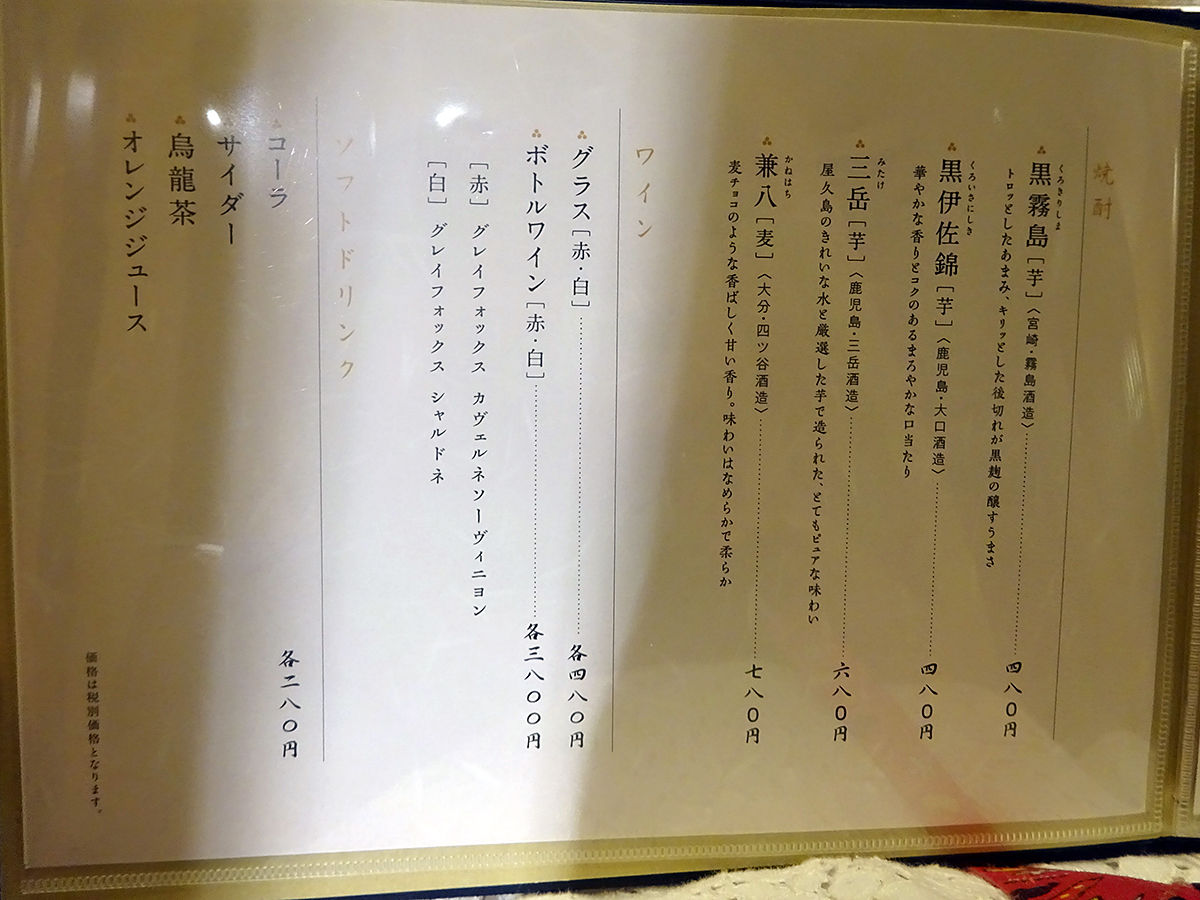 焼酎
くろきりしま
黒霧島［芋］〈宮崎・霧島酒造〉……四八〇円
トロッとしたあまみ、キリッとした後切れが黒麹の醸すうまさ
くろいさにしき
黒伊佐錦［芋］〈鹿児島・大口酒造〉……四八〇円
華やかな香りとコクのあるまろやかな口当たり
みたけ
三岳［芋］〈鹿児島・三岳酒造〉……六八〇円
屋久島のきれいな水と厳選した芋で造られた、とてもピュアな味わい
かねはち
兼八［麦］〈大分・四ツ谷酒造〉……七八〇円
麦チョコのような香ばしく甘い香り。味わいはなめらかで柔らか
ワイン
グラス［赤・白］……各四八〇円
ボトルワイン［赤・白］……各三八〇〇円
［赤］ グレイフォックス カヴェルネソーヴィニヨン
［白］ グレイフォックス シャルドネ
ソフトドリンク
コーラ 各二八〇円
サイダー
烏龍茶
オレンジジュース
価格は税別価格となります。